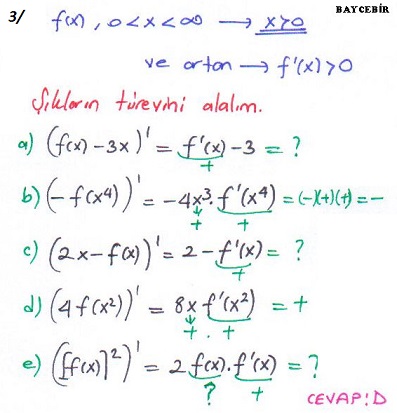 3/ f(x), 0<x<∞ → x>0 BAYCEBİR
ve artan → f'(x)>0
Şıkların türevini alalım.
a) (f(x) - 3x)' = f'(x) - 3 = ?
+
b) (-f(x⁴))' = -4x³. f'(x⁴) = (-)(+)(+) = -
+ +
c) (2x - f(x))' = 2 - f'(x) = ?
+
d) (4f(x²))' = 8x f'(x²) = +
+ . +
e) ([f(x)]²)' = 2 f(x). f'(x) = ?
? +
CEVAP: D